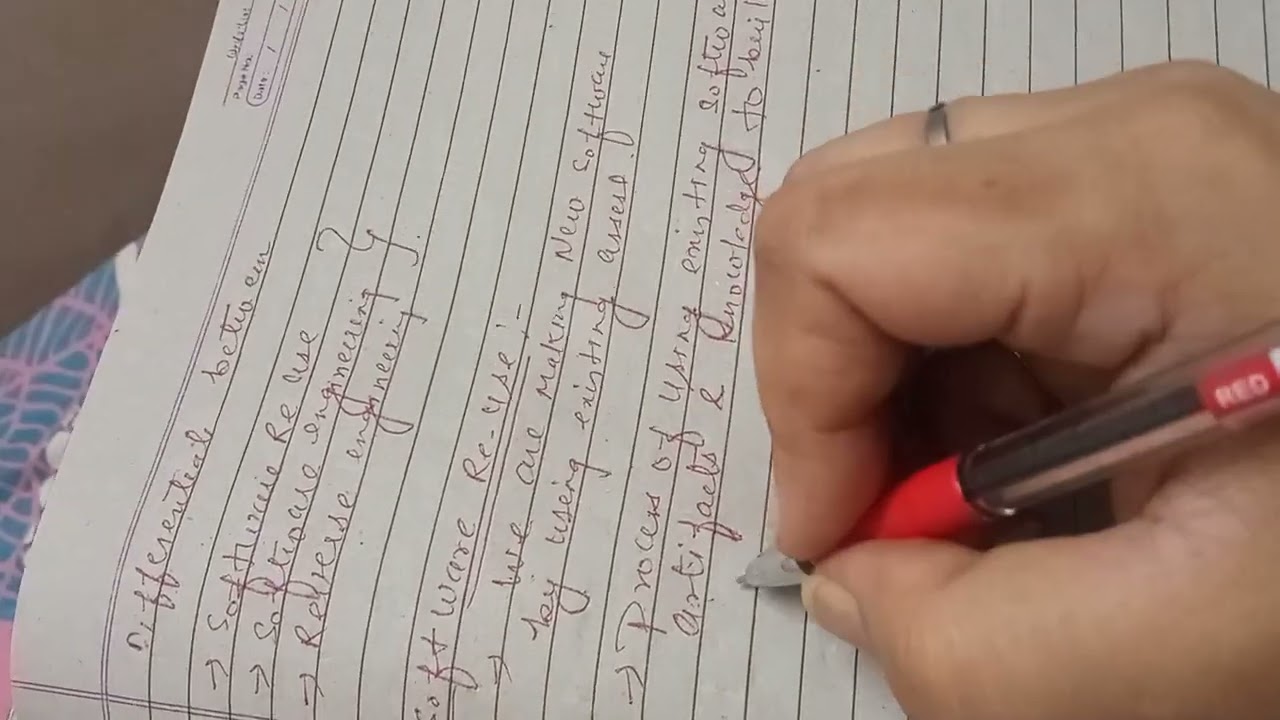 Page No.
Date: / /
Differentiate between
→ Software Re use
→ Software engineering
→ Reverse engineering
Software Re-use:-
→ We are making New software
by using existing assest.
→ Process of using existing softwa
artifacts & knowledge to buil
RED